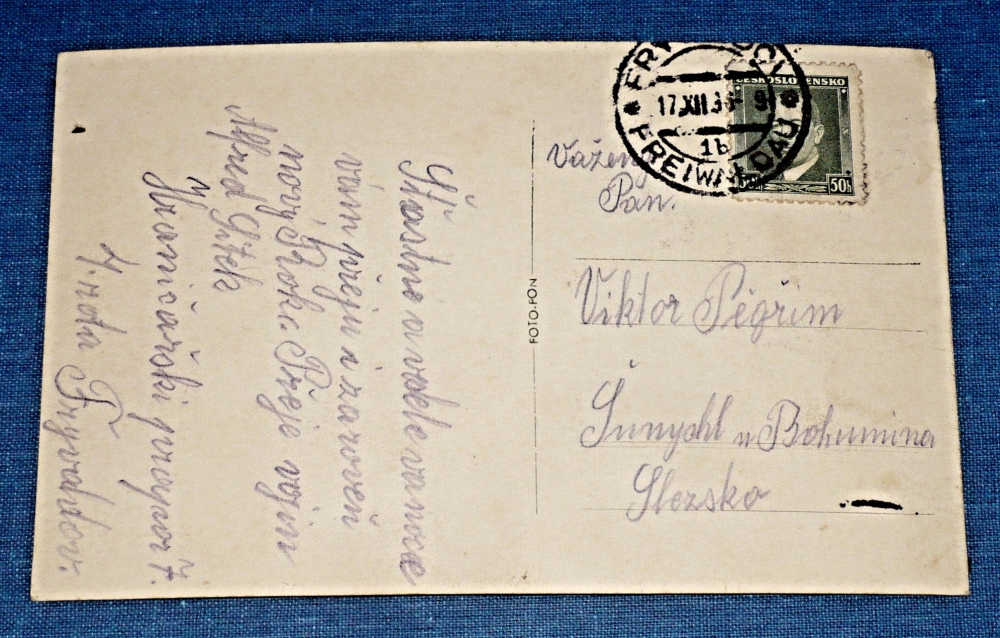 Šťastné a veselé vanoce
vám přeju a zaroveň
nový Rok. Přeje vojín
Alfred
Hraničařski prapor 7.
4. rota Fryvaldov.
FOTO-FON
FREIWALDAU
17.XII.36- 9
1b
ČESKOSLOVENSKO
50h
Vážený
Pan.
Viktor Pegřim
Šunychl u Bohumina
Slezsko